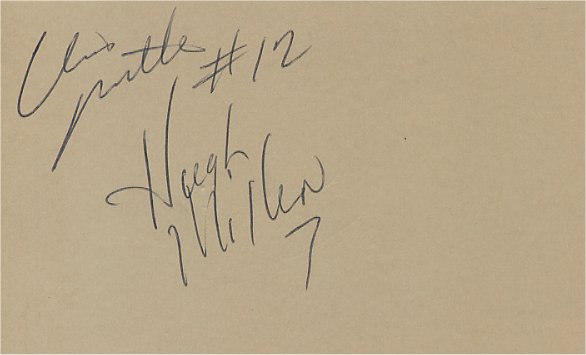 Chris Miller #12
Hugh
Millen
7